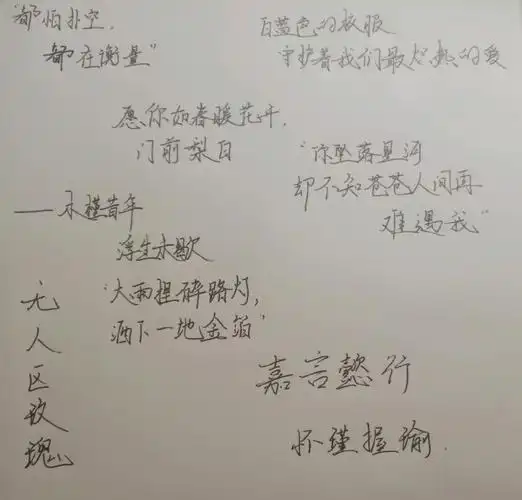 “都怕扑空，
都在衡量”
白蓝色的衣服
守护着我们最炽热的爱
愿你如春暖花开，
门前梨白
“你坠落星河
却不知苍苍人间再
难遇我”
——木槿昔年
浮生未歇
“大雨捏碎路灯，
洒下一地金箔”
无人区玫瑰
嘉言懿行
怀瑾握瑜.